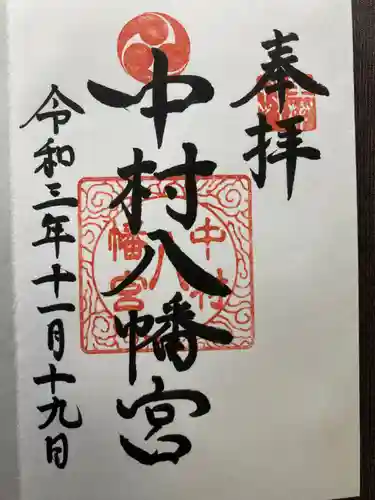 奉拝
中村八幡宮
令和三年十一月十九日
中村
八
幡宮